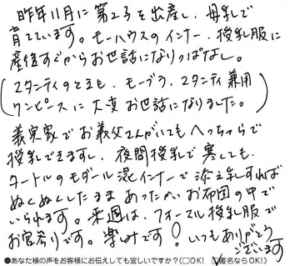 昨年11月に第2子を出産し、母乳で
育てています。モーハウスのインナー、授乳服に
産後すぐからお世話になりっぱなし。
(マタニティのときも、モーブラ、マタニティ兼用
ワンピースに大変お世話になりました。)
義実家でお義父さんがいてもへっちゃらで
授乳できますし、夜間授乳で寒しても、
タートルのモダール混インナーで添え乳すれば
ぬくぬくしたままあったかいお布団の中で
いられます。来週は、フォーマル授乳服で
お宮参りです。楽しみです!いつもありがとう
ございます
●あなた様の声をお客様にお伝えしても宜しいですか?(□OK! ☑匿名ならOK!)